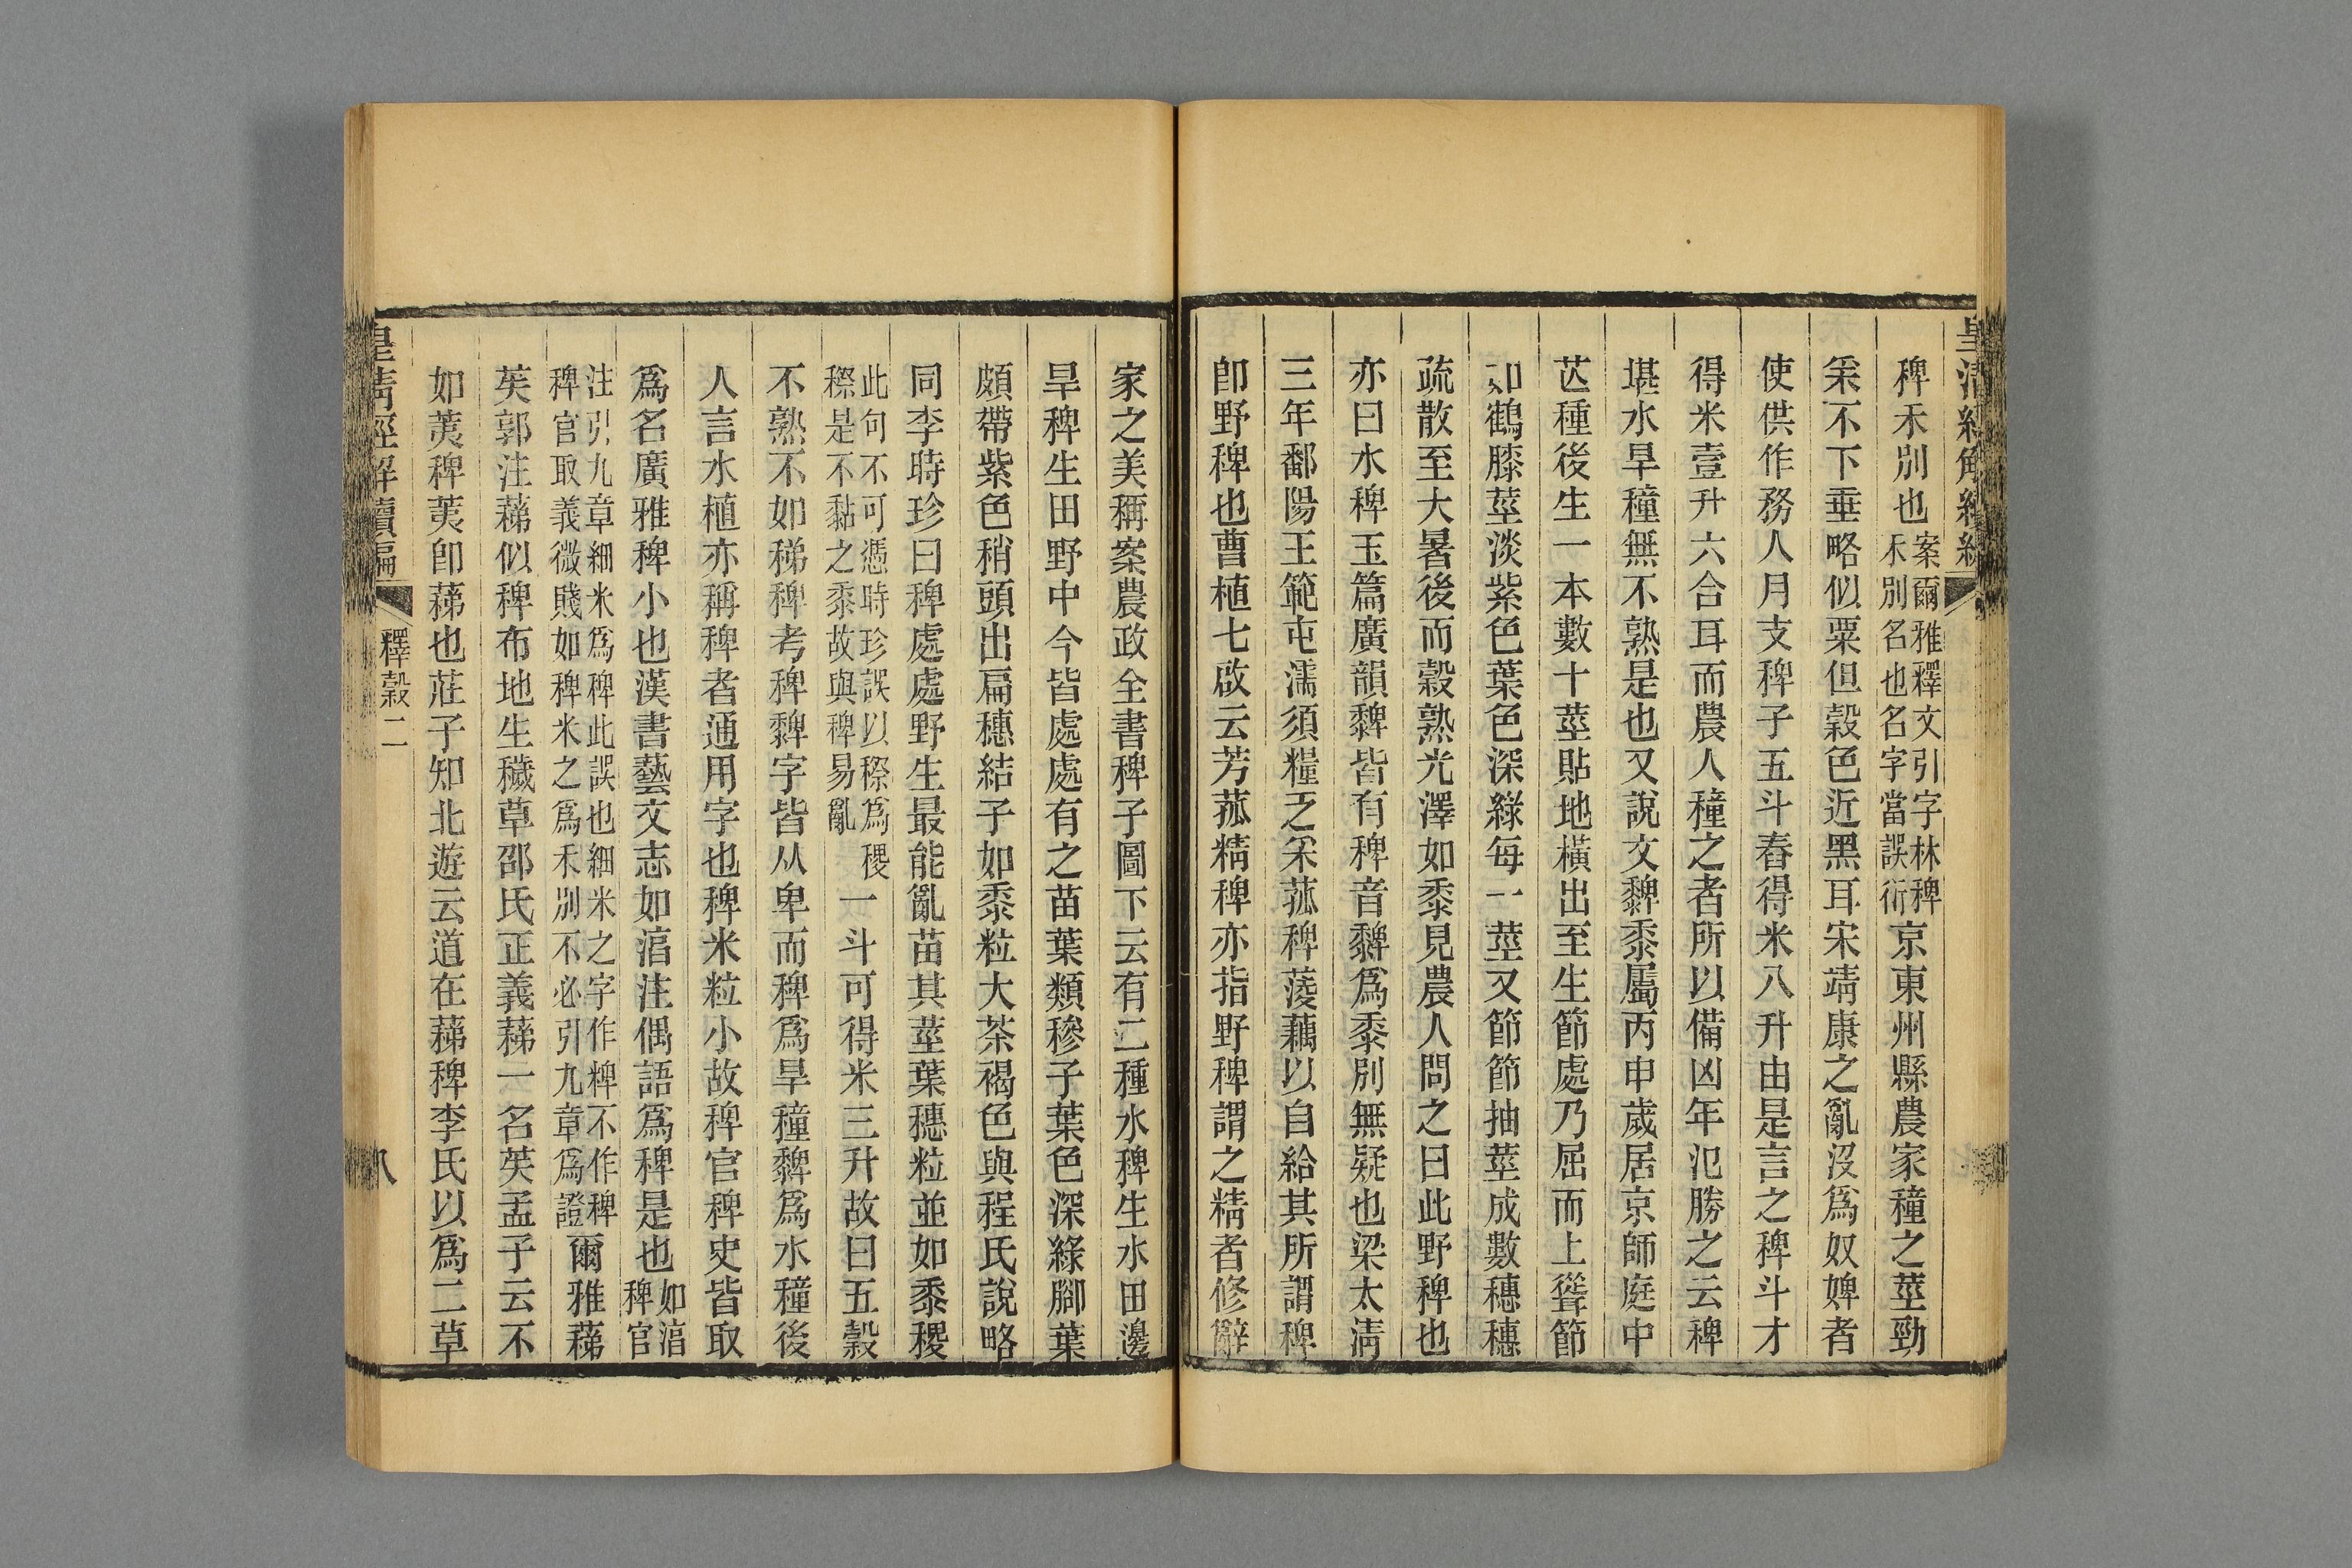 稗禾別也案爾雅釋文引字林稗禾別名也名字當誤衍京東州縣農家穜之莖勁
采不下垂略似粟但穀色近黑耳宋靖康之亂沒爲奴婢者
使供作務人月支稗子五斗舂得米八升由是言之稗斗才
得米壹升六合耳而農人穜之者所以備凶年氾勝之云稗
堪水旱穜無不熟是也又說文䅟黍屬丙申歲居京師庭中
芒種後生一本數十莖貼地橫出至生節處乃屈而上聳節
如鶴膝莖淡紫色葉色深綠每一莖又節節抽莖成數穗穗
疏散至大暑後而穀熟光澤如黍見農人問之曰此野稗也
亦曰水稗玉篇廣韻䵗皆有稗音䵗爲黍別無疑也梁太淸
三年鄱陽王範屯濡須糧乏采菰稗蔆藕以自給其所謂稗
卽野稗也曹植七啟云芳菰精稗亦指野稗謂之精者修辭
家之美稱案農政全書稗子圖下云有二種水稗生水田邊
旱稗生田野中今皆處處有之苗葉類穇子葉色深綠腳葉
頗帶紫色稍頭出扁穗結子如黍粒大茶褐色與程氏說略
同李時珍曰稗處處野生最能亂苗其莖葉穗粒並如黍稷
此句不可憑時珍誤以穄爲稷穄是不黏之黍故與稗易亂一斗可得米三升故曰五穀
不熟不如稊稗考稗䵗字皆从卑而稗爲旱穜䵗爲水穜後
人言水植亦稱稗者通用字也稗米粒小故稗官稗史皆取
爲名廣雅稗小也漢書藝文志如淯注偶語爲稗是也如淯稗官
注引九章細米爲稗此誤也細米之字作粺不作稗稗官取義微賤如稗米之爲禾別不必引九章爲證爾雅蕛
苵郭注蕛似稗布地生穢草邵氏正義蕛一名苵孟子云不
如荑稗荑卽蕛也莊子知北遊云道在蕛稗李氏以爲二草
皇清經解續編
釋穀二
八